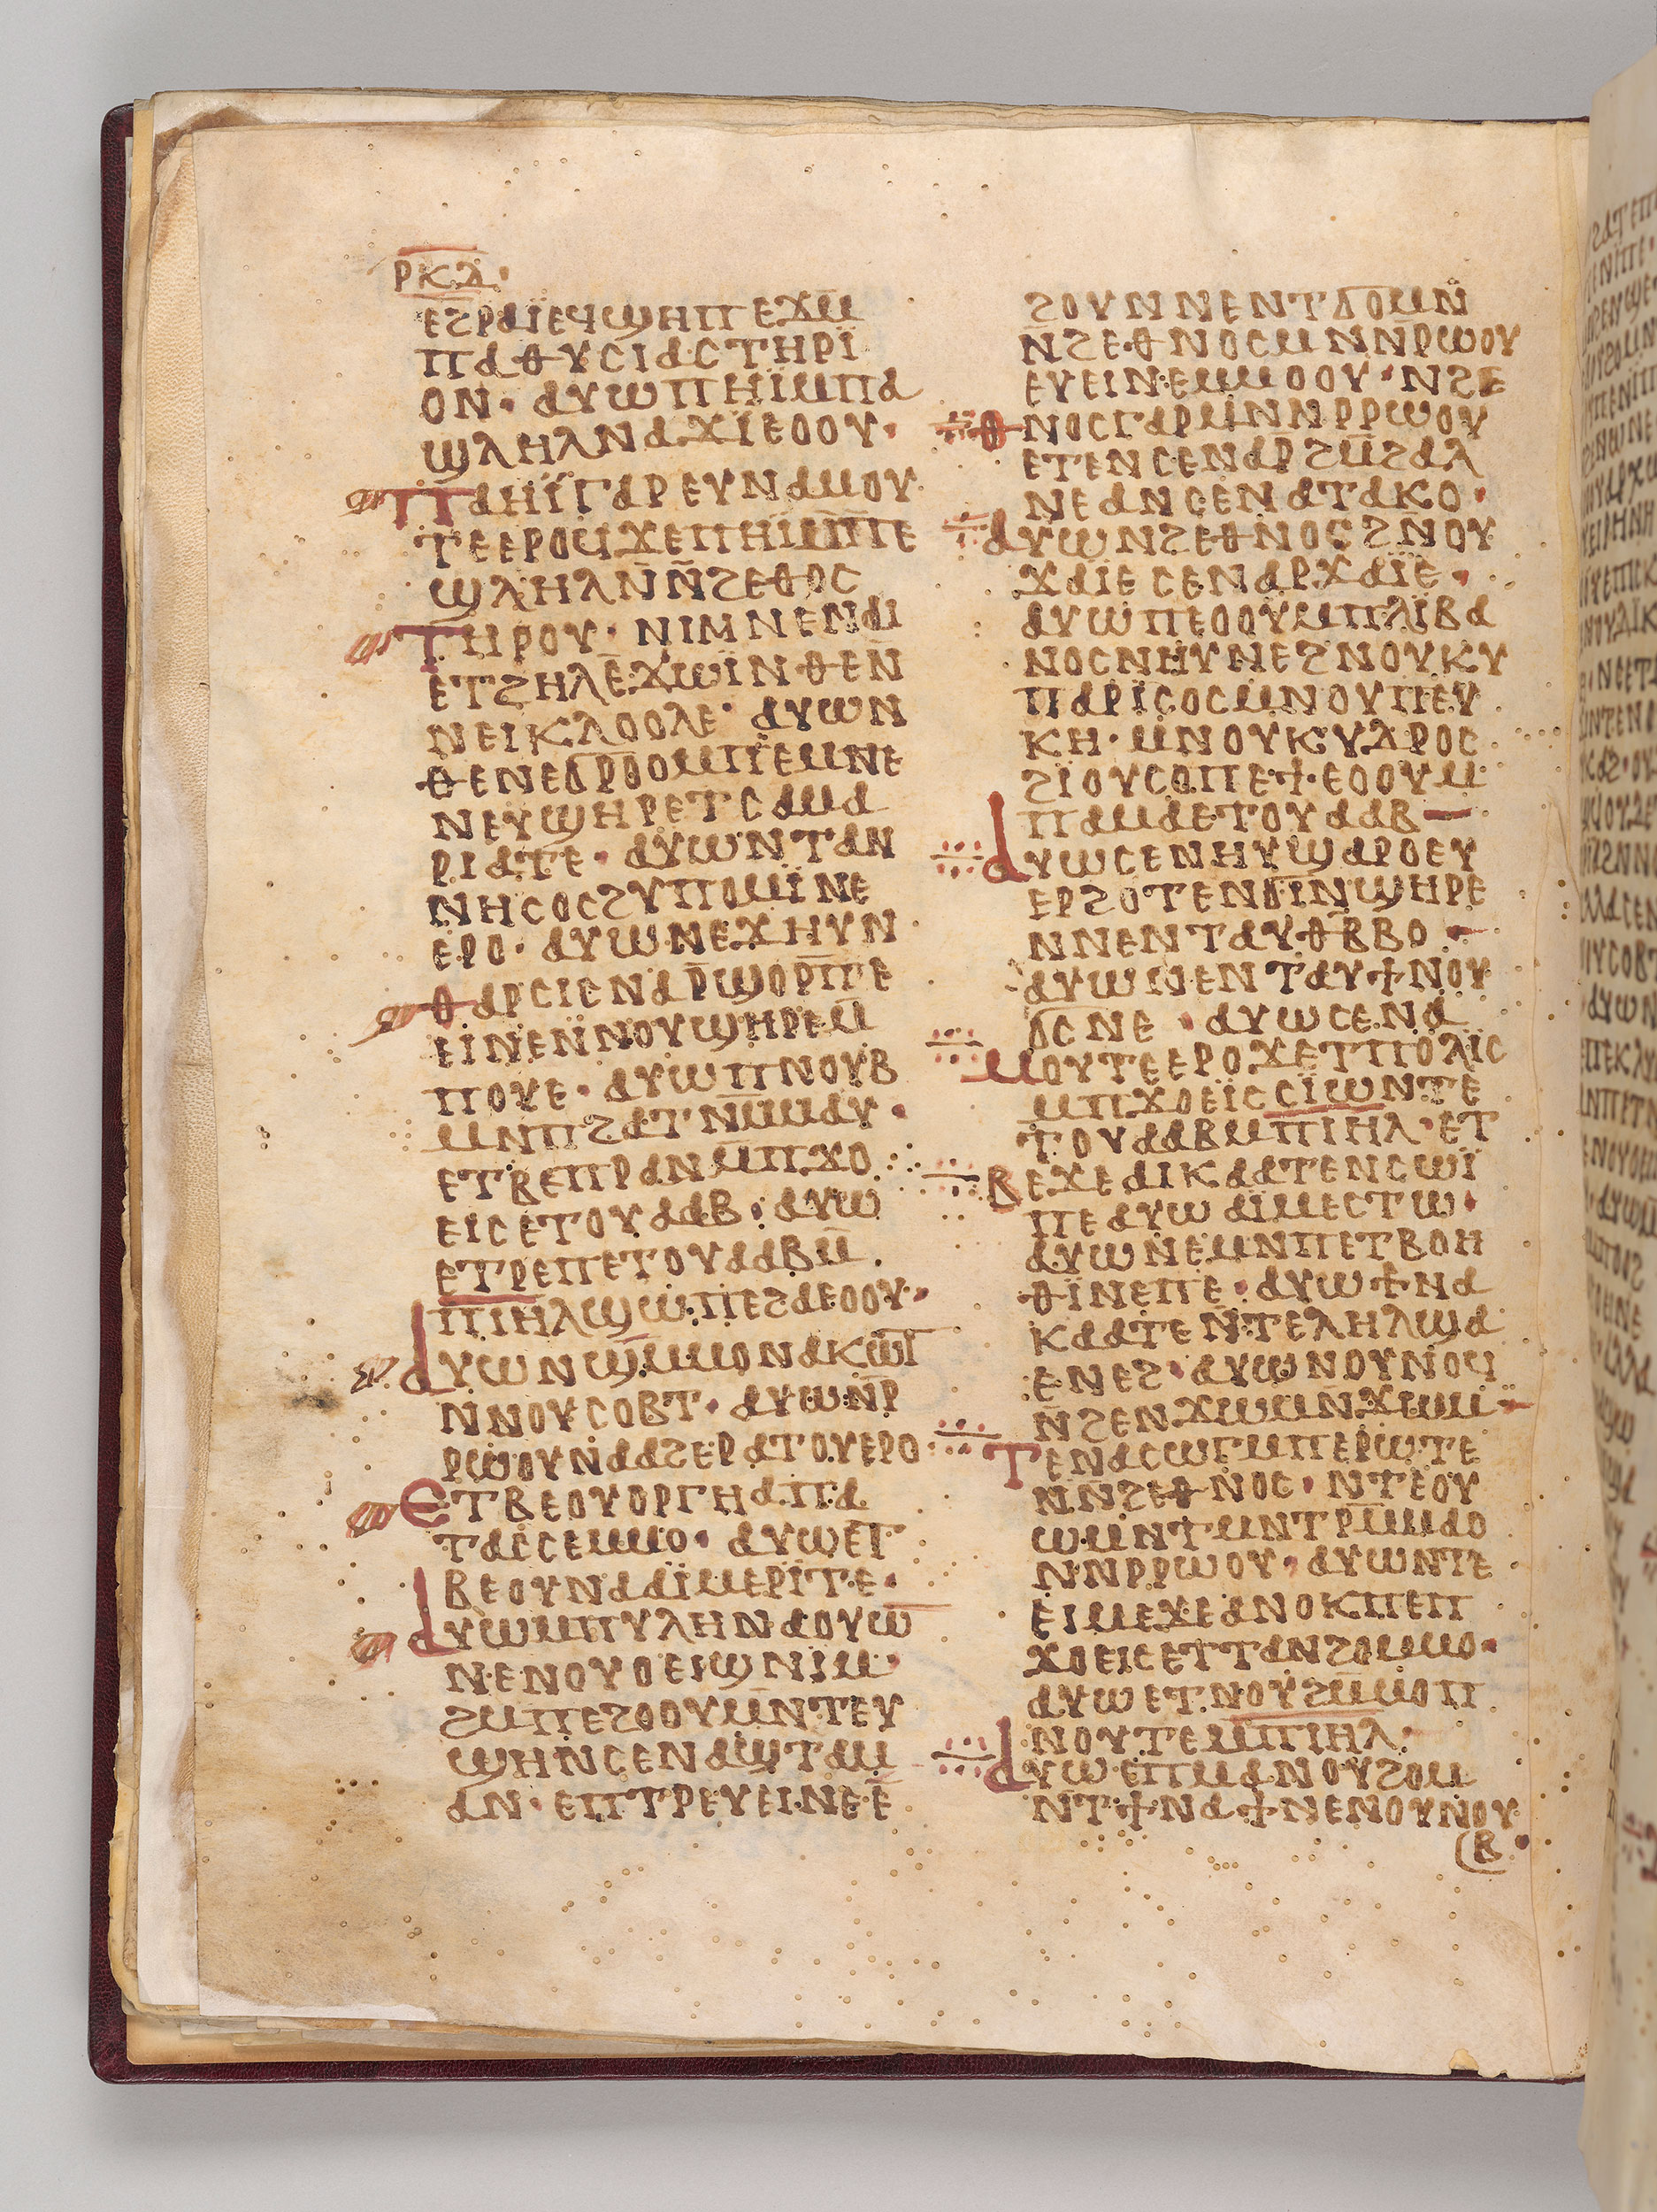 ⲣⲕⲇ
ⲉϩⲣⲁⲓ̈ⲉϥϣⲏⲡⲉϫⲙ̅
ⲡⲁⲑⲩⲥⲓⲁⲥⲧⲏⲣⲓ̈
ⲟⲛ· ⲁⲩⲱⲡⲏⲓ̈ⲙⲡⲁ
ϣⲗⲏⲗⲛⲁϫⲓ̈ⲉⲟⲟⲩ·
ⲡⲁⲏⲓ̈ⲅⲁⲣⲉⲩⲛⲁⲙⲟⲩ
ⲧⲉⲉⲣⲟϥϫⲉⲡⲏⲓ̈ⲙ̅ⲡ̅ⲡⲉ
ϣⲗⲏⲗⲛ̅ⲛ̅ϩⲉⲑⲟⲥ
ⲧⲏⲣⲟⲩ· ⲛⲓⲙⲛⲉⲛⲁⲓ
ⲉⲧϩⲏⲗⲉ̅ϫⲱⲓ̈ⲛⲑⲉⲛ̅
ⲛⲉⲓⲕⲗⲟⲟⲗⲉ· ⲁⲩⲱⲛ
ⲑⲉⲛⲉϭⲣⲟⲟⲙⲡⲉⲙⲛⲉ
ⲛⲉⲩϣⲏⲣⲉⲧⲥⲁⲙⲁ
ⲣⲓⲁⲧⲉ· ⲁⲩⲱⲛⲧⲁⲛ
ⲛⲏⲥⲟⲥϩⲩⲡⲟⲙⲓ̈ⲛⲉ
ⲉⲣⲟ· ⲁⲩⲱⲛⲉϫⲏⲩⲛ
ⲑⲁⲣⲥⲓⲥⲛⲁⲣ̅ϣⲟⲣⲡ̅ⲡⲉ
ⲉⲓ̈ⲛⲉⲛ̈ⲛⲟⲩϣⲏⲣⲉⲙ̅
ⲡⲟⲩⲉ· ⲁⲩⲱⲡⲛⲟⲩⲃ
ⲙⲛⲡϩⲁⲧⲛⲙ̅ⲙⲁⲩ·
ⲉⲧⲃⲉⲡⲣⲁⲛⲙ̅ⲡϫⲟ
ⲉⲓⲥⲉⲧⲟⲩⲁⲁⲃ· ⲁⲩⲱ
ⲉⲧⲣⲉⲡⲉⲧⲟⲩⲁⲁⲃⲙ̅
ⲡⲓⲏⲗϣⲱⲡⲉϩⲁⲉⲟⲟⲩ·
ⲁⲩⲱⲛϣⲙ̅ⲙⲟⲛⲁⲕⲱ̅ⲧ
ⲛⲛⲟⲩⲥⲟⲃⲧ· ⲁⲩⲱⲛⲣ̅
ⲣⲱⲟⲩⲛⲁⲁϩⲉⲣⲁⲧⲟⲩⲉⲣⲟ
ⲉⲧⲃⲉⲟⲩⲟⲣⲅⲏⲁⲡⲁ
ⲧⲁⲥⲥⲉⲙⲙⲟ· ⲁⲩⲱⲉⲧ
ⲃⲉⲟⲩⲛⲁⲁⲓ̈ⲙⲉⲣⲓ̈ⲧⲉ·
ⲁⲩⲱⲙⲡⲩⲗⲏⲛⲁⲟⲩⲱ̅
ⲛⲉⲛⲟⲩⲟⲉⲓϣⲛⲓⲙ
ϩⲙⲡⲉϩⲟⲟⲩⲙⲛ̅ⲧⲉⲩ
ϣⲏⲛⲥⲉⲛⲁϣⲧⲁⲙ
ⲁⲛ· ⲉⲡⲧⲣⲉⲩⲉⲓⲛⲉⲉ̅
ϩⲟⲩⲛⲛⲉⲛⲧϭⲟⲙⲛ̅
ⲛϩⲉⲑⲛⲟⲥⲙⲛⲛⲣⲱⲟⲩ
ⲉⲩⲉⲓⲛⲉⲙⲙⲟⲟⲩ· ⲛϩⲉ
ⲑⲛⲟⲥⲅⲁⲣⲙⲛ̅ⲛⲣⲣⲱⲟⲩ
ⲉⲧⲉⲛⲥⲉⲛⲁⲣϩⲙ̅ϩⲁⲗ
ⲛⲉⲁⲛⲥⲉⲛⲁⲧⲁⲕⲟ·
ⲁⲩⲱⲛϩⲉⲑⲛⲟⲥϩⲛⲟⲩ
ϫⲁⲓ̈ⲉⲥⲉⲛⲁⲣϫⲁⲓ̈ⲉ·
ⲁⲩⲱⲡⲉⲟⲟⲩⲙⲡⲗⲓ̈ⲃⲁ
ⲛⲟⲥⲛⲏⲩⲛⲉϩⲛⲟⲩⲕⲩ
ⲡⲁⲣⲓ̈ⲥⲟⲥⲙⲛⲟⲩⲡⲉⲩ
ⲕⲏ· ⲙⲛⲟⲩⲕⲩⲇⲣⲟⲥ
ϩⲓⲟⲩⲥⲟⲡⲉϯⲉⲟⲟⲩⲙ
ⲡⲁⲙⲁⲉⲧⲟⲩⲁⲁⲃ—
ⲁⲩⲱⲥⲉⲛⲏⲩϣⲁⲣⲟⲉⲩ
ⲉⲣϩⲟⲧⲉⲛϭⲓⲛ̅ϣⲏⲣⲉ
ⲛⲛⲉⲛⲧⲁⲩⲑⲃ̅ⲃⲟ
ⲁⲩⲱⲛⲉⲛⲧⲁⲩϯⲛⲟⲩ
ϭⲥⲛⲉ· ⲁⲩⲱⲥⲉⲛⲁ
ⲙⲟⲩⲧⲉⲉⲣⲟϫⲉⲧⲡⲟⲗⲓ̈ⲥ
ⲙⲡϫⲟⲉⲓⲥⲥⲓ̈ⲱⲛⲧⲉ
ⲧⲟⲩⲁⲁⲃⲙⲡⲓⲏⲗ· ⲉⲧ
ⲃⲉϫⲉⲁⲓⲕⲁⲁⲧⲉⲛⲥⲱⲓ̈
ⲡⲉⲁⲩⲱⲁⲓⲙⲉⲥⲧⲱ·
ⲁⲩⲱⲛⲉⲙⲛⲡⲉⲧⲃⲟⲏ
ⲑⲓ̈ⲛⲉⲡⲉ· ⲁⲩⲱϯⲛⲁ
ⲕⲁⲁⲧⲉⲛⲧⲉⲗⲏⲗϣⲁ
ⲉⲛⲉϩ· ⲁⲩⲱⲛⲟⲩⲛⲟϥ
ⲛ̅ϩⲉⲛϫⲱⲙⲛ̅ϫⲱⲙ
ⲧⲉⲛⲁⲥⲱⲅⲙⲡⲉⲣⲱⲧⲉ
ⲛⲛ̅ϩⲉⲑⲛⲟⲥ· ⲛⲧⲉⲟⲩ
ⲱⲙⲛⲧⲙⲛⲧⲣⲙ̅ⲙⲁⲟ
ⲛⲛⲣⲣⲱⲟⲩ· ⲁⲩⲱⲛⲧⲉ
ⲉⲓⲙⲉϫⲉⲁⲛⲟⲕⲡⲉⲡ
ϫⲟⲉⲓⲥⲉⲧⲧⲁⲛϩⲟⲙⲙⲟ·
ⲁⲩⲱⲉⲧⲛⲟⲩϩⲙ̅ⲙⲟⲡ
ⲛⲟⲩⲧⲉⲙⲡⲓⲏⲗ·
ⲁⲩⲱⲉⲡⲙⲁⲛⲟⲩϩⲟⲙ
ⲛⲧϯⲛⲁϯⲛⲉⲛⲟⲩⲛⲟⲩ
ⲃ